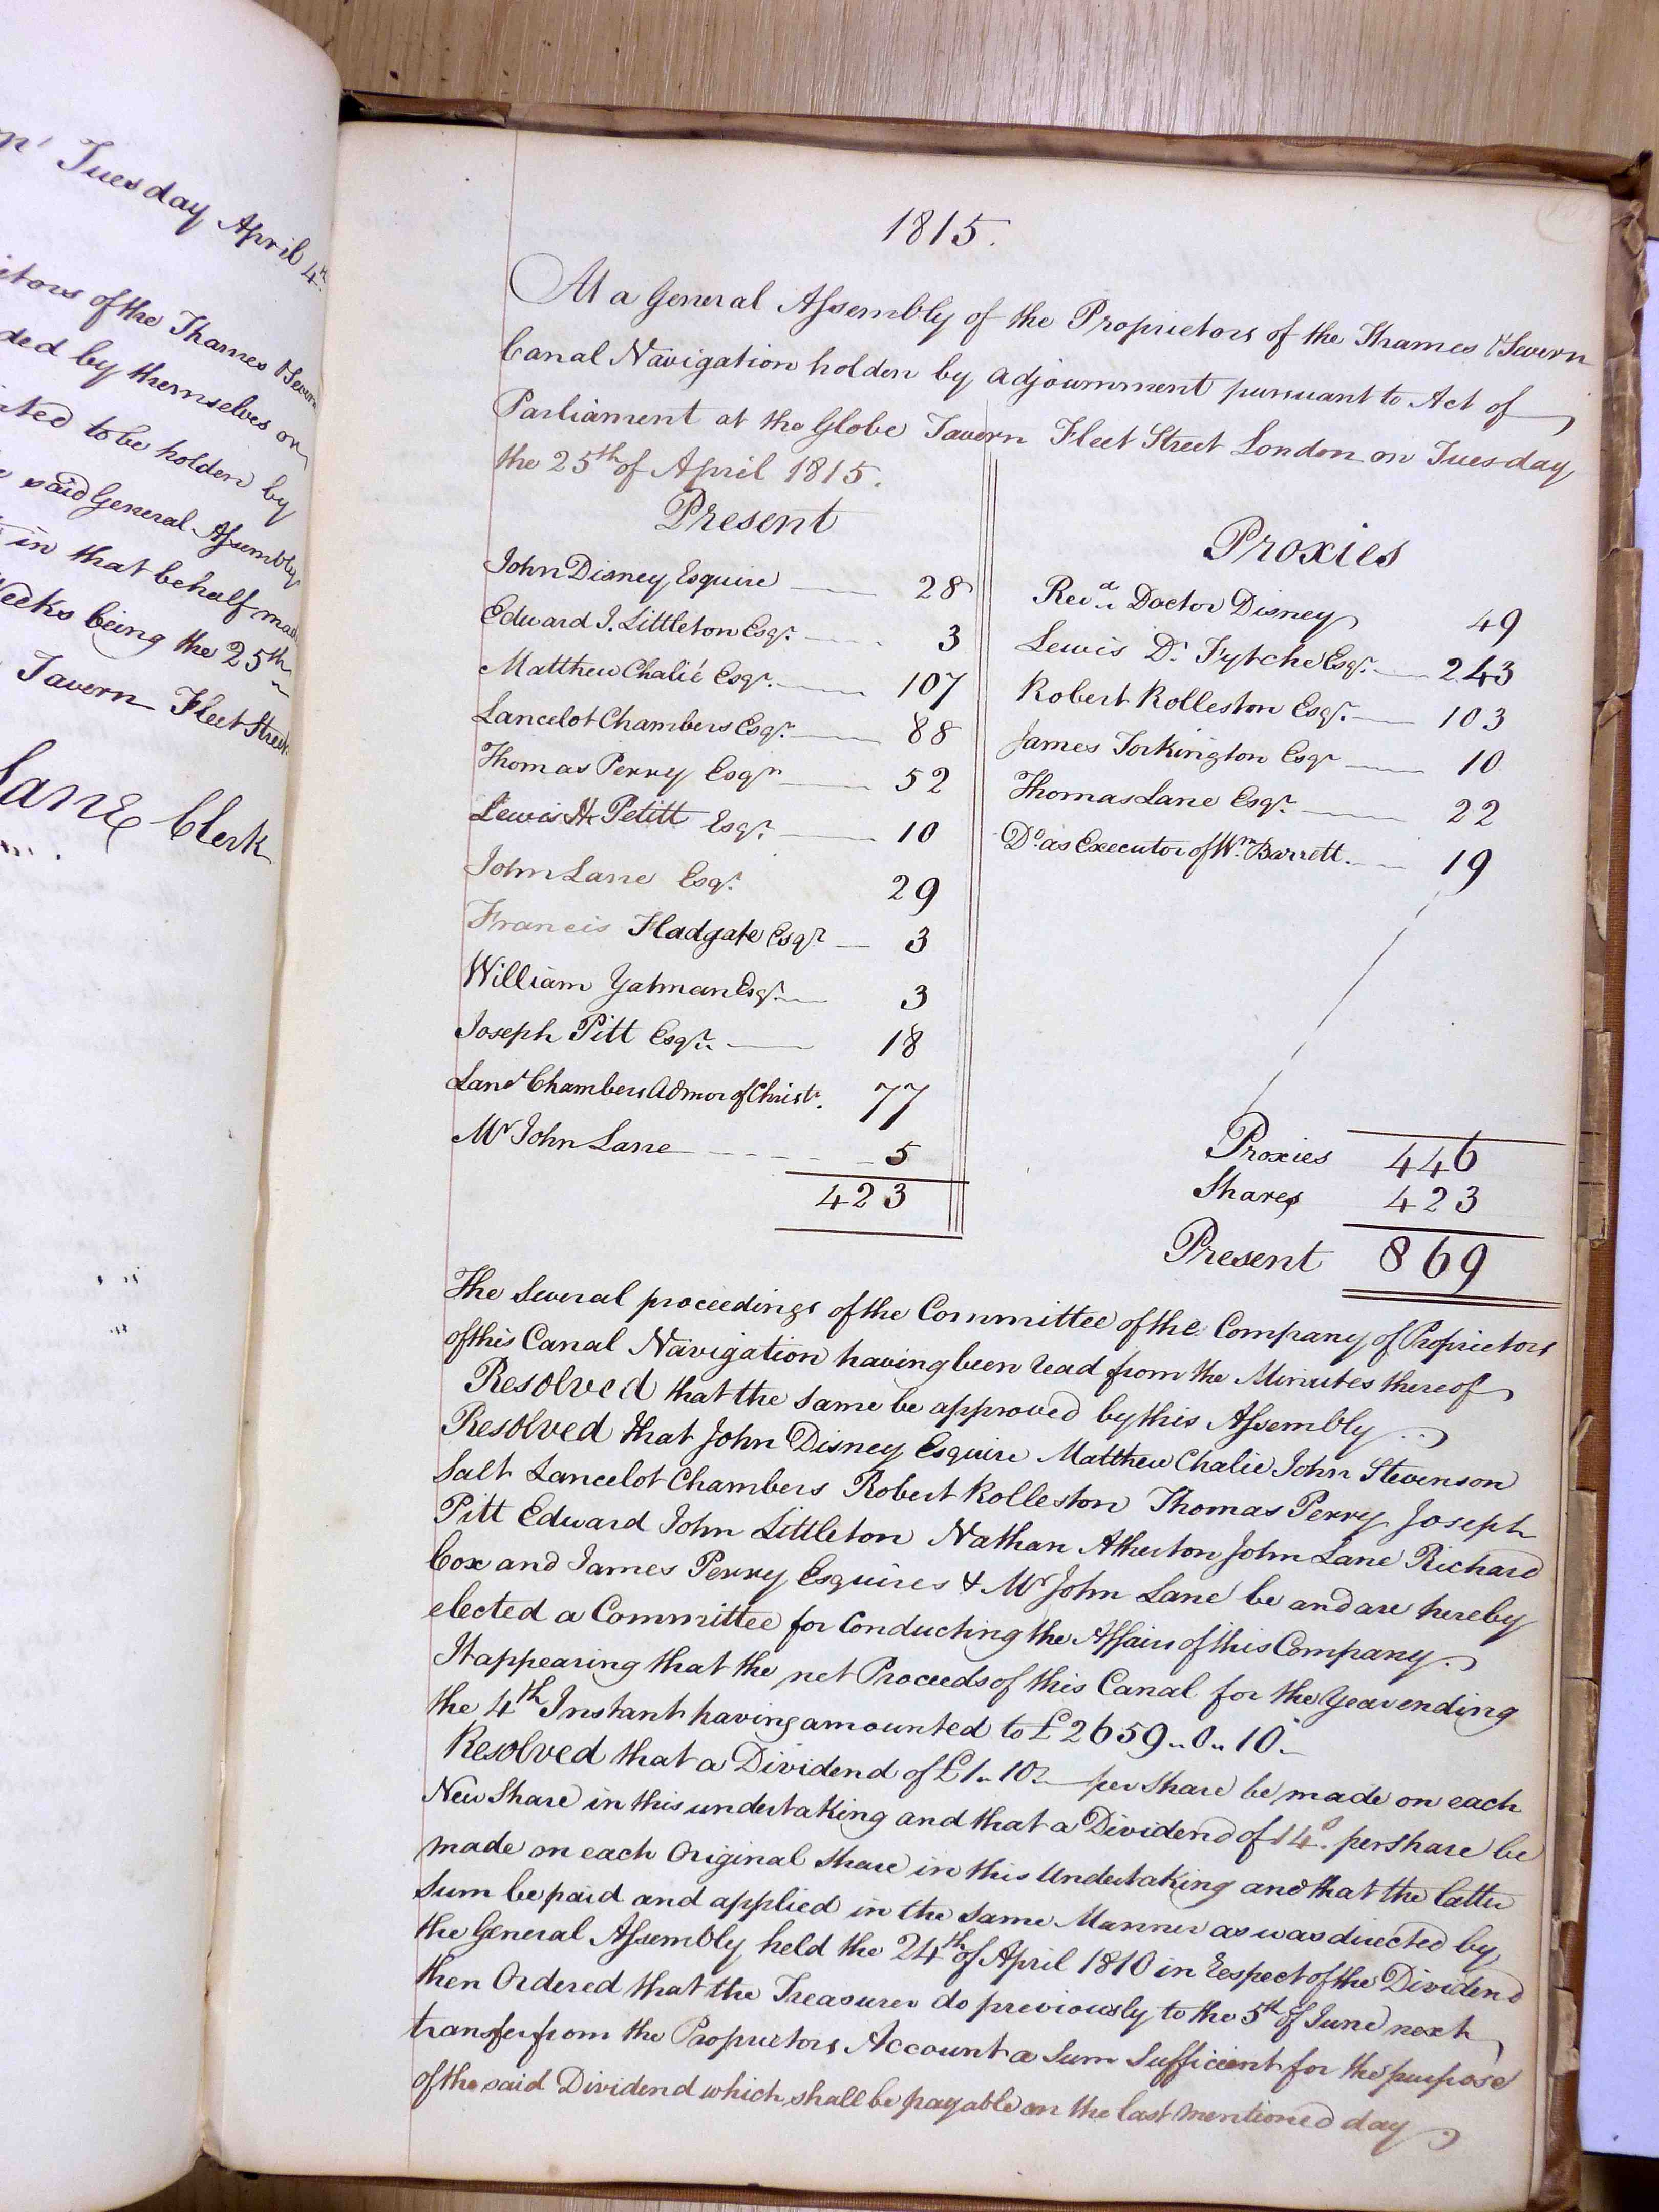 Tuesday April 4th
itors of the Thames & Severn
ded by themselves or
ted to be holden by
said General Assembly
in that behalf made
Weeks being the 25th
Tavern Fleet Street
Lane Clerk
1815.
At a General Assembly of the Proprietors of the Thames & Severn
Canal Navigation holden by adjournment pursuant to Act of
Parliament at the Globe Tavern Fleet Street London on Tuesday
the 25th of April 1815.
Present
John Disney Esquire 28
Edward J. Littleton Esqr. 3
Matthew Chalié Esqr. 107
Lancelot Chambers Esqr. 88
Thomas Perry Esqr 52
Lewis Petitt Esqr. 10
John Lane Esqr. 29
Francis Fladgate Esqr. 3
William Yatman Esqr. 3
Joseph Pitt Esqr. 18
Lanct Chambers Admor of Christr. 77
Mr John Lane 5
423
Proxies
Revd. Doctor Disney 49
Lewis D. Fytche Esqr. 243
Robert Rolleston Esqr. 103
James Torkington Esqr 10
Thomas Lane Esqr. 22
Do. as Executor of Wm. Barrett. 19
Proxies 446
Shares 423
Present 869
The several proceedings of the Committee of the Company of Proprietors
of this Canal Navigation having been read from the Minutes thereof
Resolved that the same be approved by this Assembly
Resolved that John Disney Esquire Matthew Chalie John Stevenson
Salt Lancelot Chambers Robert Rolleston Thomas Perry Joseph
Pitt Edward John Littleton Nathan Atherton John Lane Richard
Cox and James Perry Esquires & Mr John Lane be and are hereby
elected a Committee for Conducting the Affairs of this Company.
It appearing that the net Proceeds of this Canal for the Year ending
the 4th Instant having amounted to £2659..0..10.
Resolved that a Dividend of £1..10s. per Share be made on each
New Share in this undertaking and that a Dividend of 14s. per share be
made on each Original Share in this Undertaking and that the latter
Sum be paid and applied in the same Manner as was directed by
the General Assembly held the 24th of April 1810 in respect of the Dividend
then Ordered that the Treasurer do previously to the 5th of June next
transfer from the Proprietors Account a Sum Sufficient for the purpose
of the said Dividend which shall be payable on the last mentioned day